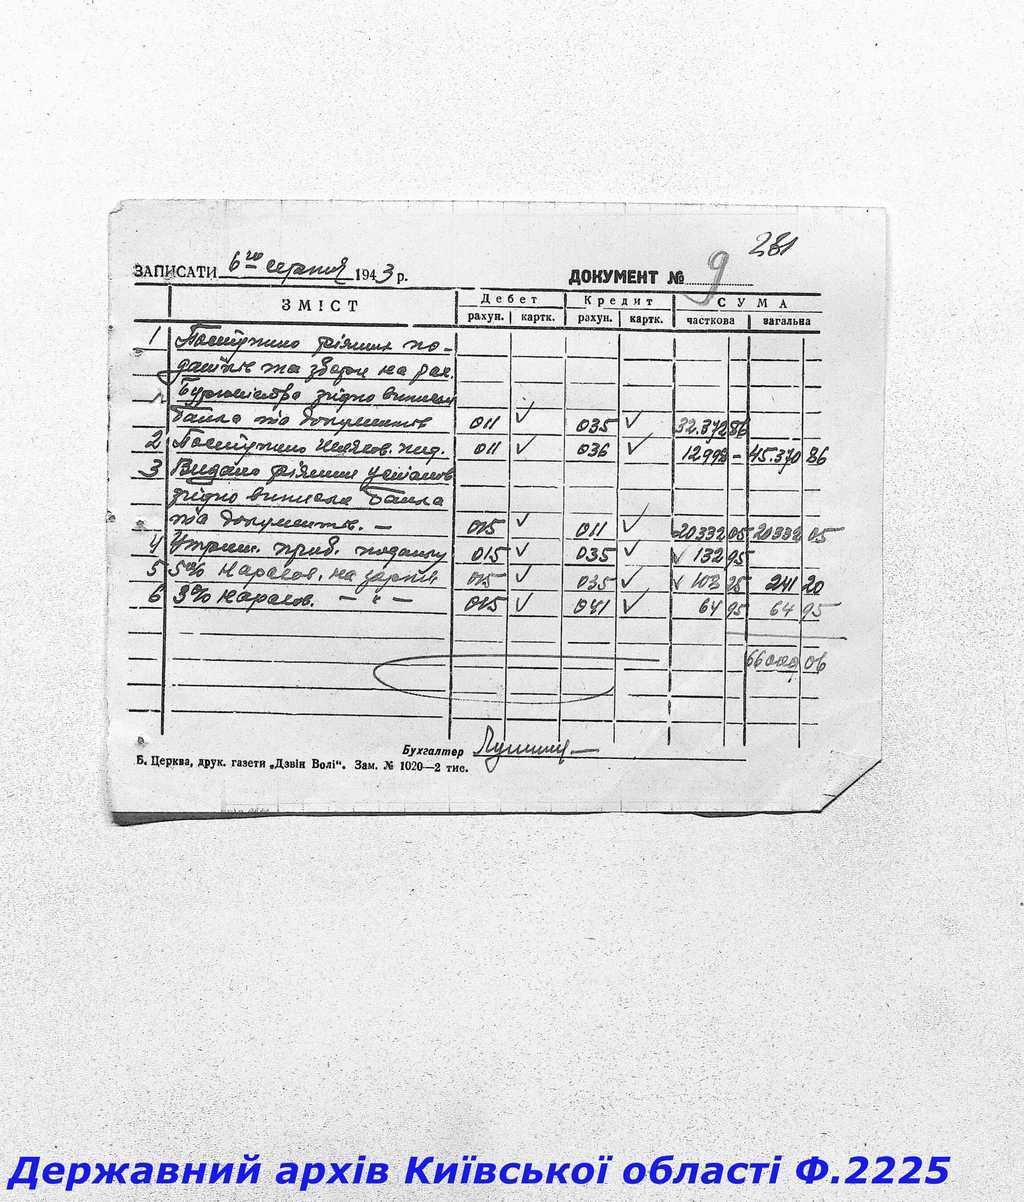 281
ЗАПИСАТИ 6го серпня 1943 р. ДОКУМЕНТ № 9
ЗМІСТ Дебет Кредит СУМА
рахун. картк. рахун. картк. часткова загальна
1 Поступило різних по-
датків та зборів на рах.
згідно виписки
банка та документів 011 ✓ 035 ✓ 32.372 86
2 Поступило 011 ✓ 036 ✓ 12998 - 45.370 86
3 Видано різним установ
згідно виписки банка
та документів. — 015 ✓ 011 ✓ 20332 05 20332 05
4 Утрим. приб. податку 015 ✓ 035 ✓ ✓ 132 95
5 5% нарахов. на зарпл 015 ✓ 035 ✓ ✓ 108 25 241 20
6 3% нарахов. — " — 015 ✓ 041 ✓ 64 95 64 95
66009 06
Бухгалтер
Б. Церква, друк. газети „Дзвін Волі“. Зам. № 1020—2 тис.
Державний архів Київської області Ф.2225